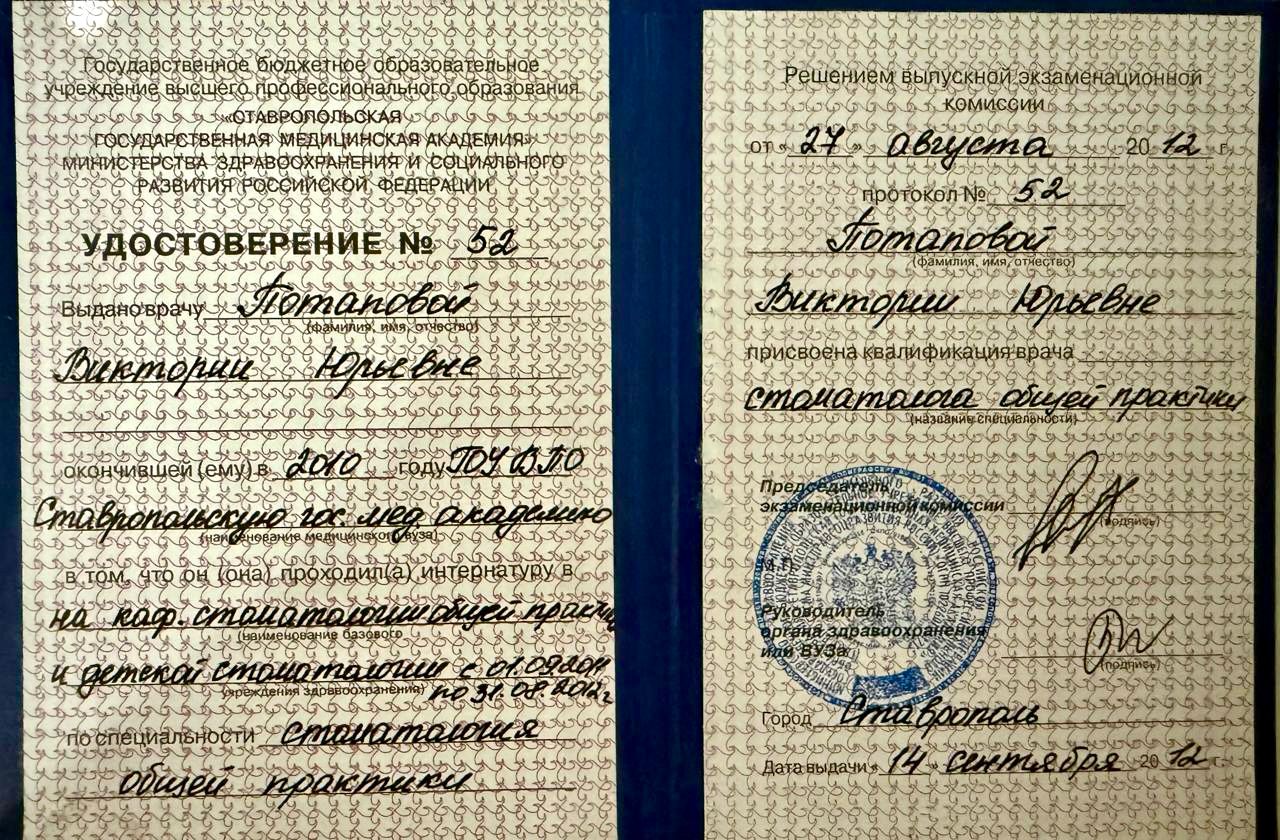 Государственное бюджетное образовательное
учреждение высшего профессионального образования
«СТАВРОПОЛЬСКАЯ
ГОСУДАРСТВЕННАЯ МЕДИЦИНСКАЯ АКАДЕМИЯ»
МИНИСТЕРСТВА ЗДРАВООХРАНЕНИЯ И СОЦИАЛЬНОГО
РАЗВИТИЯ РОССИЙСКОЙ ФЕДЕРАЦИИ
УДОСТОВЕРЕНИЕ № 52
Выдано врачу Потаповой
(фамилия, имя, отчество)
Виктории Юрьевне
окончившей (ему) в 2010 году ГОУ ВПО
Ставропольскую гос. мед. академию
(наименование медицинского вуза)
в том, что он (она) проходил(а) интернатуру в
на каф. стоматологии общей практики
(наименование базового
и детской стоматологии с 01.09.2011
учреждения здравоохранения)
по 31.08.2012г
по специальности стоматология
общей практики
Решением выпускной экзаменационной
комиссии
от « 27 » августа 20 12 г.
протокол № 52
Потаповой
(фамилия, имя, отчество)
Виктории Юрьевне
присвоена квалификация врача
стоматолога общей практики
(название специальности)
Председатель
экзаменационной комиссии
(подпись)
М.П.
Руководитель
органа здравоохранения
или ВУЗа
(подпись)
Город Ставрополь
Дата выдачи « 14 » сентября 20 12 г.